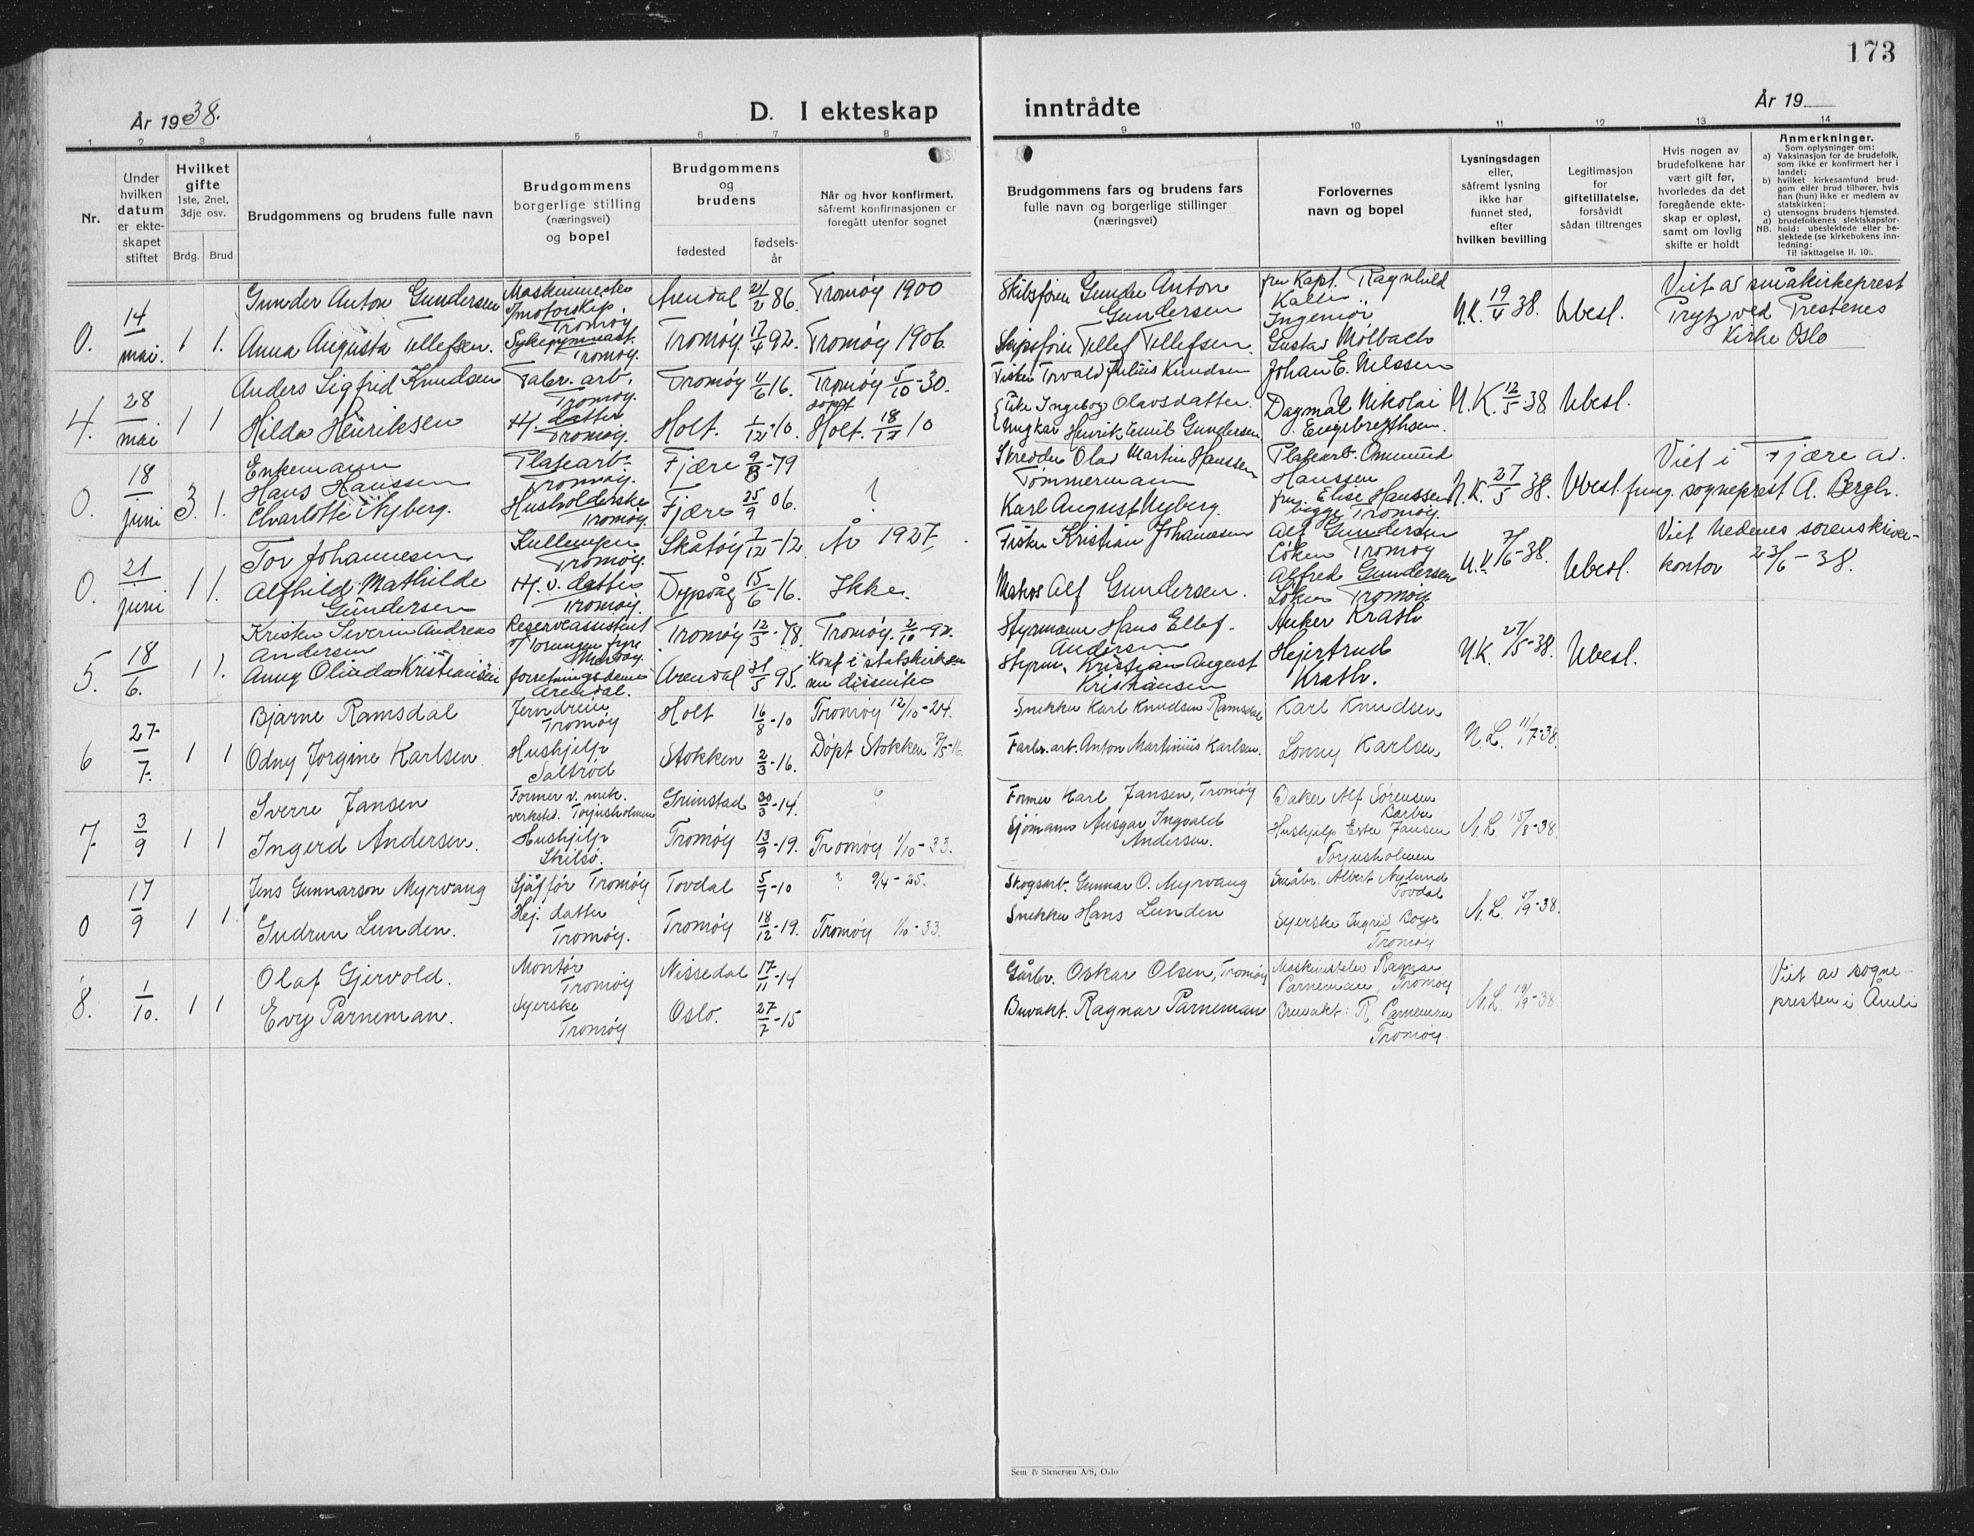 173
År 1938.
D. I ekteskap inntrådte
År 19
1 2 3 4 5 6 7 8 9 10 11 12 13 14
Nr.
Under
hvilken
datum
er ekte-
skapet
stiftet
Hvilket
gifte
1ste, 2net,
3dje osv.
Brdg. Brud
Brudgommens og brudens fulle navn
Brudgommens
borgerlige stilling
(næringsvei)
og bopel
Brudgommens
og
brudens
fødested
fødsels-
år
Når og hvor konfirmert,
såfremt konfirmasjonen er
foregått utenfor sognet
Brudgommens fars og brudens fars
fulle navn og borgerlige stillinger
(næringsvei)
Forlovernes
navn og bopel
Lysningsdagen
eller,
såfremt lysning
ikke har
funnet sted,
efter
hvilken bevilling
Legitimasjon
for
giftetillatelse,
forsåvidt
sådan tiltrenges
Hvis nogen av
brudefolkene har
vært gift før,
hvorledes da det
foregående ekte-
skap er opløst,
samt om lovlig
skifte er holdt
Anmerkninger.
Som oplysninger om:
a) Vaksinasjon for de brudefolk,
som ikke er konfirmert her i
landet;
b) hvilket kirkesamfund brud-
gom eller brud tilhører, hvis
han (hun) ikke er medlem av
statskirken;
c) utensogns brudens hjemsted.
d) brudefolkenes slektskapsfor-
NB. hold: ubeslektede eller be-
slektede (se kirkebokens inn-
ledning:
Til iakttagelse II. 10).
0. 14/mai 1 1.
Gunder Anton Gundersen
Maskinmester
Tromøy
Arendal 21/2 86. Tromøy 1900
Skibsfører Gunder Anton
Gundersen
fru Kapt. Ragnhild
Ingeniør
N.K. 19/4 38. Ubesl.
Viet av småkirkeprest
ved Prestenes
Kirke Oslo
Anna Augusta Tellefsen.
Sykegymnast.
Tromøy.
Tromøy. 17/4 92. Tromøy 1906.
Skipsfører Tellef Tellefsen.
Gustav Mølbach
4. 28/mai 1 1
Anders Sigfrid Knudsen
Fabr. arb.
Tromøy.
Tromøy 11/6 16. Tromøy 5/10-30.
Fisker Torvald Julius Knudsen
Johan E. Nilssen
N.K. 12/5 38 Ubesl.
Hilda Henriksen
H. datter
Tromøy.
Holt. 1/12-10. døpt
Holt. 18/17 10
Ingeborg Olavsdatter.
Ungkar Henrik Emil Gundersen.
Dagmar Nikolai
Engebrethsen.
0. 18/juni 3. 1.
Enkemann
Hans Hanssen
Platearb.
Tromøy.
Fjære 9/8-79
Skredder Olav Martin Hanssen
Tømmermann
Platearb. Ommund
Hanssen
N.K. 27/5 38. Ubesl.
Viet i Fjære av
fung. sogneprest A. Bergh.
Charlotte Nyberg.
Husholderske
Tromøy.
Fjære 25/9 06. ?
Karl August Nyberg.
fru Elise Hanssen
begge Tromøy.
0. 21/juni 1 1.
Tor Johannesen
Tromøy.
Skåtøy 7/12-12 År 1927.
Fisker Kristian Johannesen
Alf Gundersen
Tromøy
7/6-38. Ubesl.
Viet Nedenes sorenskriver-
kontor 23/6-38.
Alfhild Mathilde
Gundersen
H. v. datter
Tromøy.
Dypvåg 15/6-16. Ikke.
Matros Alf Gundersen.
Alfred Gundersen
Tromøy.
5. 18/6. 1 1.
Kristen Severin Andreas
Andersen
Reserveassistent
Torungen fyr
Tromøy 12/3-78. Tromøy. 2/10-92.
Styrmann Hans Ellef.
Andersen
Anker Krath
N.K. 27/5-38. Ubesl.
Anny Olinda Kristiansen
Arendal.
Arendal 31/5 95. Konf i statskirken
nu dissenter
Styrm. Kristian August
Kristiansen
Hejertrud
Krath.
6 27/7. 1 1
Bjarne Ramsdal
Tromøy
Holt 16/8-10 Tromøy 12/10-24.
Snekker Karl Knudsen Ramsdal
Karl Knudsen
N.L. 11/7-38.
Odny Jørgine Karlsen.
Hushjelp
Saltrød
Stokken 2/3-16. Døpt Stokken 7/5-16.
Fabr. arb. Anton Martinius Karlsen.
Lonny Karlsen
7. 3/9 1 1
Sverre Jansen
Former v. mek.
verksted. Torjusholmen
Grimstad 30/3-14. ?
Former Karl Jansen, Tromøy
Baker Alf Sørensen
Barbu
N.L. 15/8-38.
Ingerd Andersen.
Hushjelp
Skilsø.
Tromøy 13/9-19. Tromøy 1/10-33.
Sjømann Ansgar Ingvald
Andersen.
Hushjelp Ester Jansen
Torjusholmen
0 17/9 1 1.
Jens Gunnarson Myrvang
Sjåfør Tromøy
Tovdal 5/7-10 ? 9/4-25.
Skogsarb. Gunnar O. Myrvang
Småbr. Albert Nylund
Tovdal
N.L. 17/9-38.
Gudrun Lunden.
Hej. datter
Tromøy.
Tromøy 18/12-19. Tromøy 1/10-33.
Snekker Hans Lunden
Syerske Ingrid Boye
Tromøy
8. 1/10. 1 1
Olaf Gjervold.
Montør
Tromøy
Nissedal 17/11-14
Gårbr. Oskar Olsen, Tromøy
Maskinist Ragnar
Parneman, Tromøy
N.L. 19/9-38.
Viet av sogne-
presten i Åmli
Evy Parneman.
Syerske
Tromøy
Oslo. 27/7-15
Buvakt. Ragnar Parneman
Bruvakt: R. Parneman
Tromøy.
Sem & Stenersen A/S, Oslo